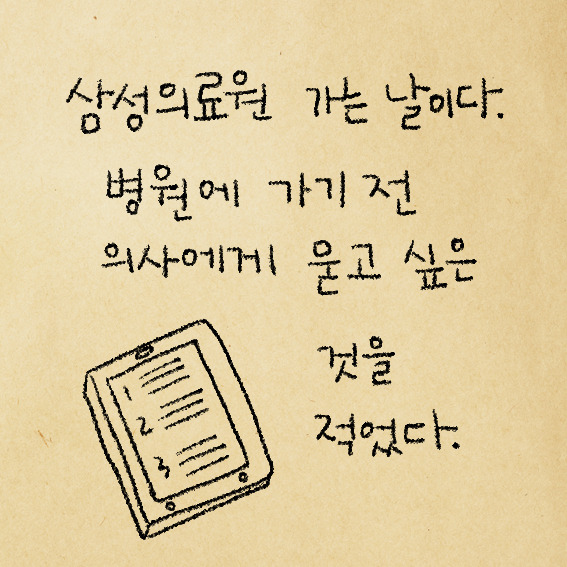 삼성의료원 가는 날이다.
병원에 가기 전
의사에게 묻고 싶은
것을
적었다.
1
2
3